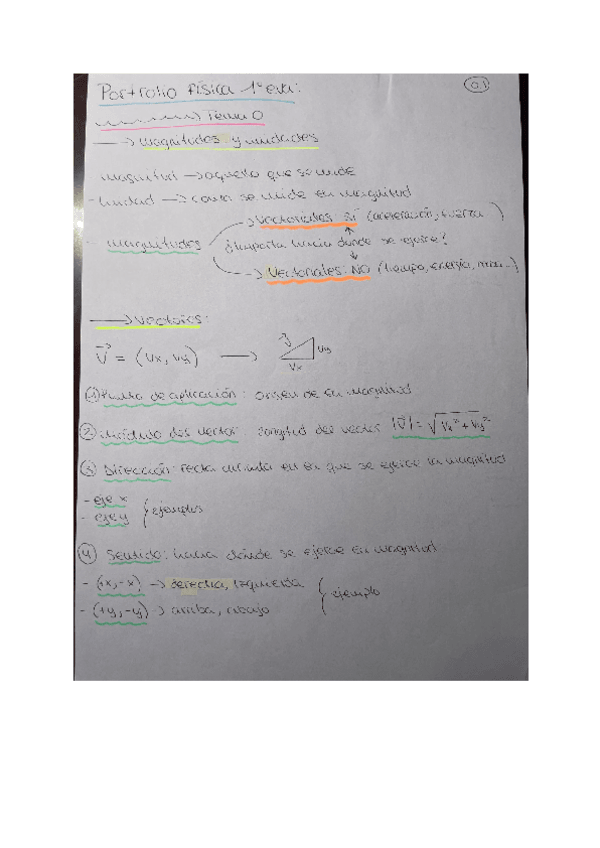 Portfolio física 1ª eva:
0.1
Tema 0
→ Magnitudes y unidades
magnitud → aquello que se mide
- Unidad → como se mide en magnitud
→ Vectoriales: SÍ (aceleración, fuerza)
- magnitudes ¿Importa hacia dónde se ejerce?
→ Vectoriales: NO (tiempo, energía, masa...)
→ Vectores:
V⃗ = (Vx, Vy) →
Vy
Vx
① Punto de aplicación: origen de su magnitud
② módulo del vector longitud del vector |V⃗| = √Vx² + Vy²
③ Dirección: recta en en que se ejerce la magnitud
- eje x
- eje y } ejemplos
④ Sentido: hacia dónde se ejerce su magnitud
- (+x, -x) → derecha, izquierda
- (+y, -y) → arriba, abajo } ejemplo